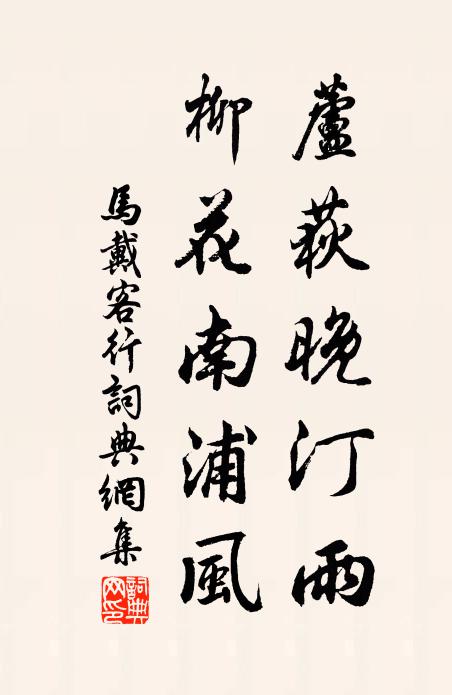 蘆荻晚汀雨
柳花南浦風
馬戴客行詞典網集
詞典網印